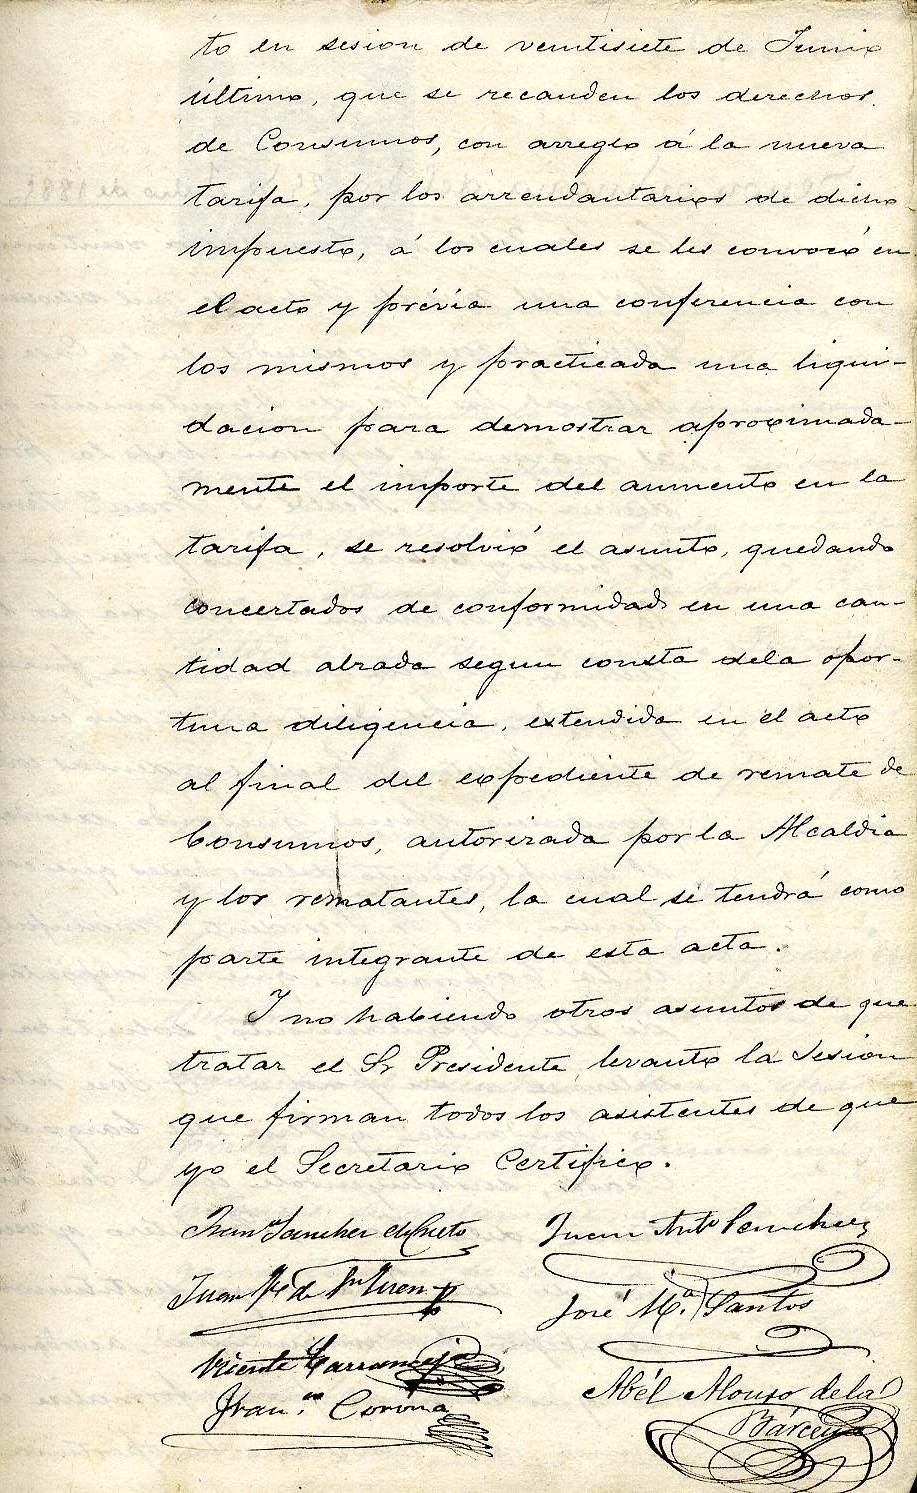 to en sesion de veintisiete de Junio
último, que se recauden los derechos
de Consumos, con arreglo á la nueva
tarifa, por los arrendantarios de dicho
impuesto, á los cuales se les convocó en
el acto y prévia una conferencia con
los mismos y practicada una liqui-
dacion para demostrar aproximada-
mente el importe del aumento en la
tarifa, se resolvió el asunto, quedando
concertados de conformidad en una can-
tidad alzada segun consta dela opor-
tuna diligencia, extendida en el acto
al final del expediente de remate de
Consumos, autorizada por la Alcaldia
y los rematantes, la cual se tendrá como
parte integrante de esta acta.
Y no habiendo otros asuntos de que
tratar el Sr Presidente levanto la Sesion
que firman todos los asistentes de que
yo el Secretario Certifico.
Juan Sanchez de Cueto Juan Antº Sanchez
Juan de
José Mª Santos
Vicente
Franco Corona
Abél Alonso dela
Bárcena